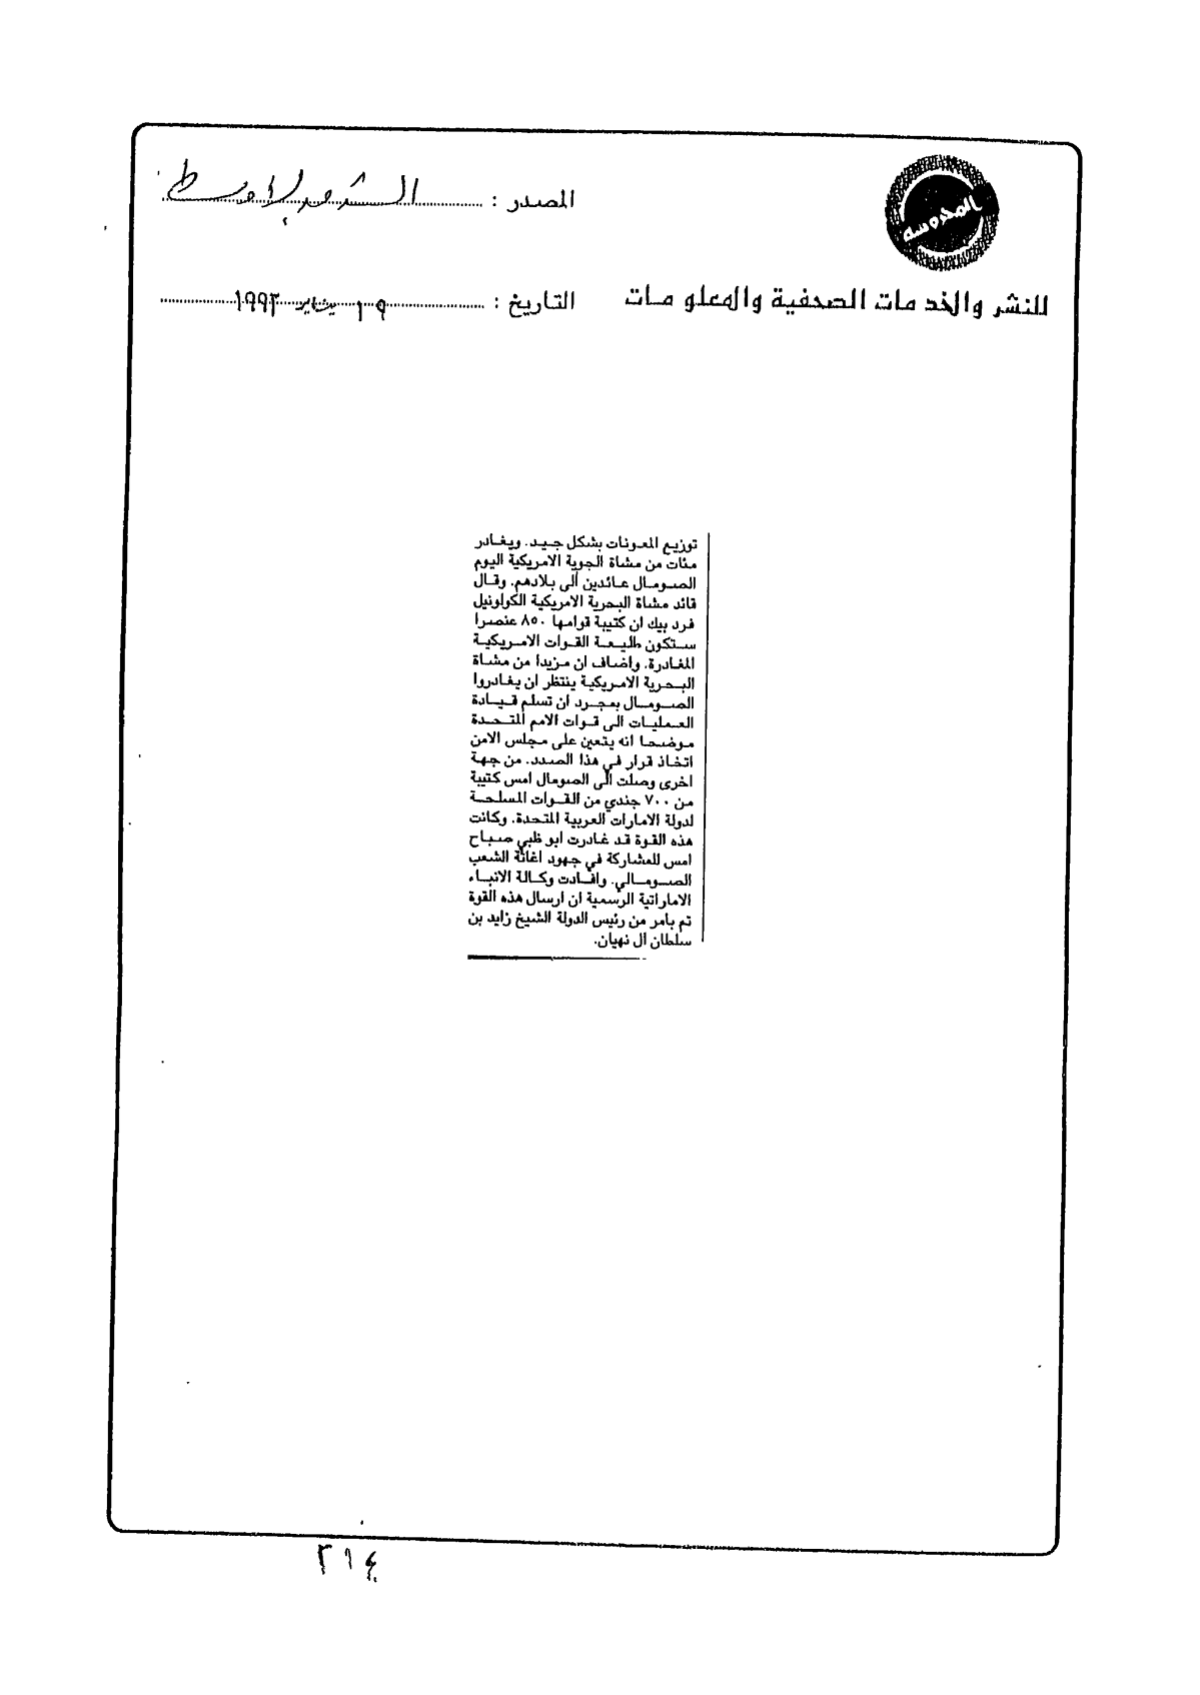 المحروسة
المصدر : الشرق الأوسط
للنشر والخدمات الصحفية والمعلومات
التاريخ : ١٩ يناير ١٩٩٣
توزيع المعونات بشكل جيد. ويغادر
مئات من مشاة الجوية الامريكية اليوم
الصومال عائدين الى بلادهم. وقال
قائد مشاة البحرية الامريكية الكولونيل
فرد بيك ان كتيبة قوامها ٨٥٠ عنصرا
ستكون طليعة القوات الامريكية
المغادرة. واضاف ان مزيدا من مشاة
البحرية الامريكية ينتظر ان يغادروا
الصومال بمجرد ان تسلم قيادة
العمليات الى قوات الامم المتحدة
موضحا انه يتعين على مجلس الامن
اتخاذ قرار في هذا الصدد. من جهة
اخرى وصلت الى الصومال امس كتيبة
من ٧٠٠ جندي من القوات المسلحة
لدولة الامارات العربية المتحدة. وكانت
هذه القوة قد غادرت ابو ظبي صباح
امس للمشاركة في جهود اغاثة الشعب
الصومالي. وافادت وكالة الانباء
الاماراتية الرسمية ان ارسال هذه القوة
تم بامر من رئيس الدولة الشيخ زايد بن
سلطان ال نهيان.
٢١٤